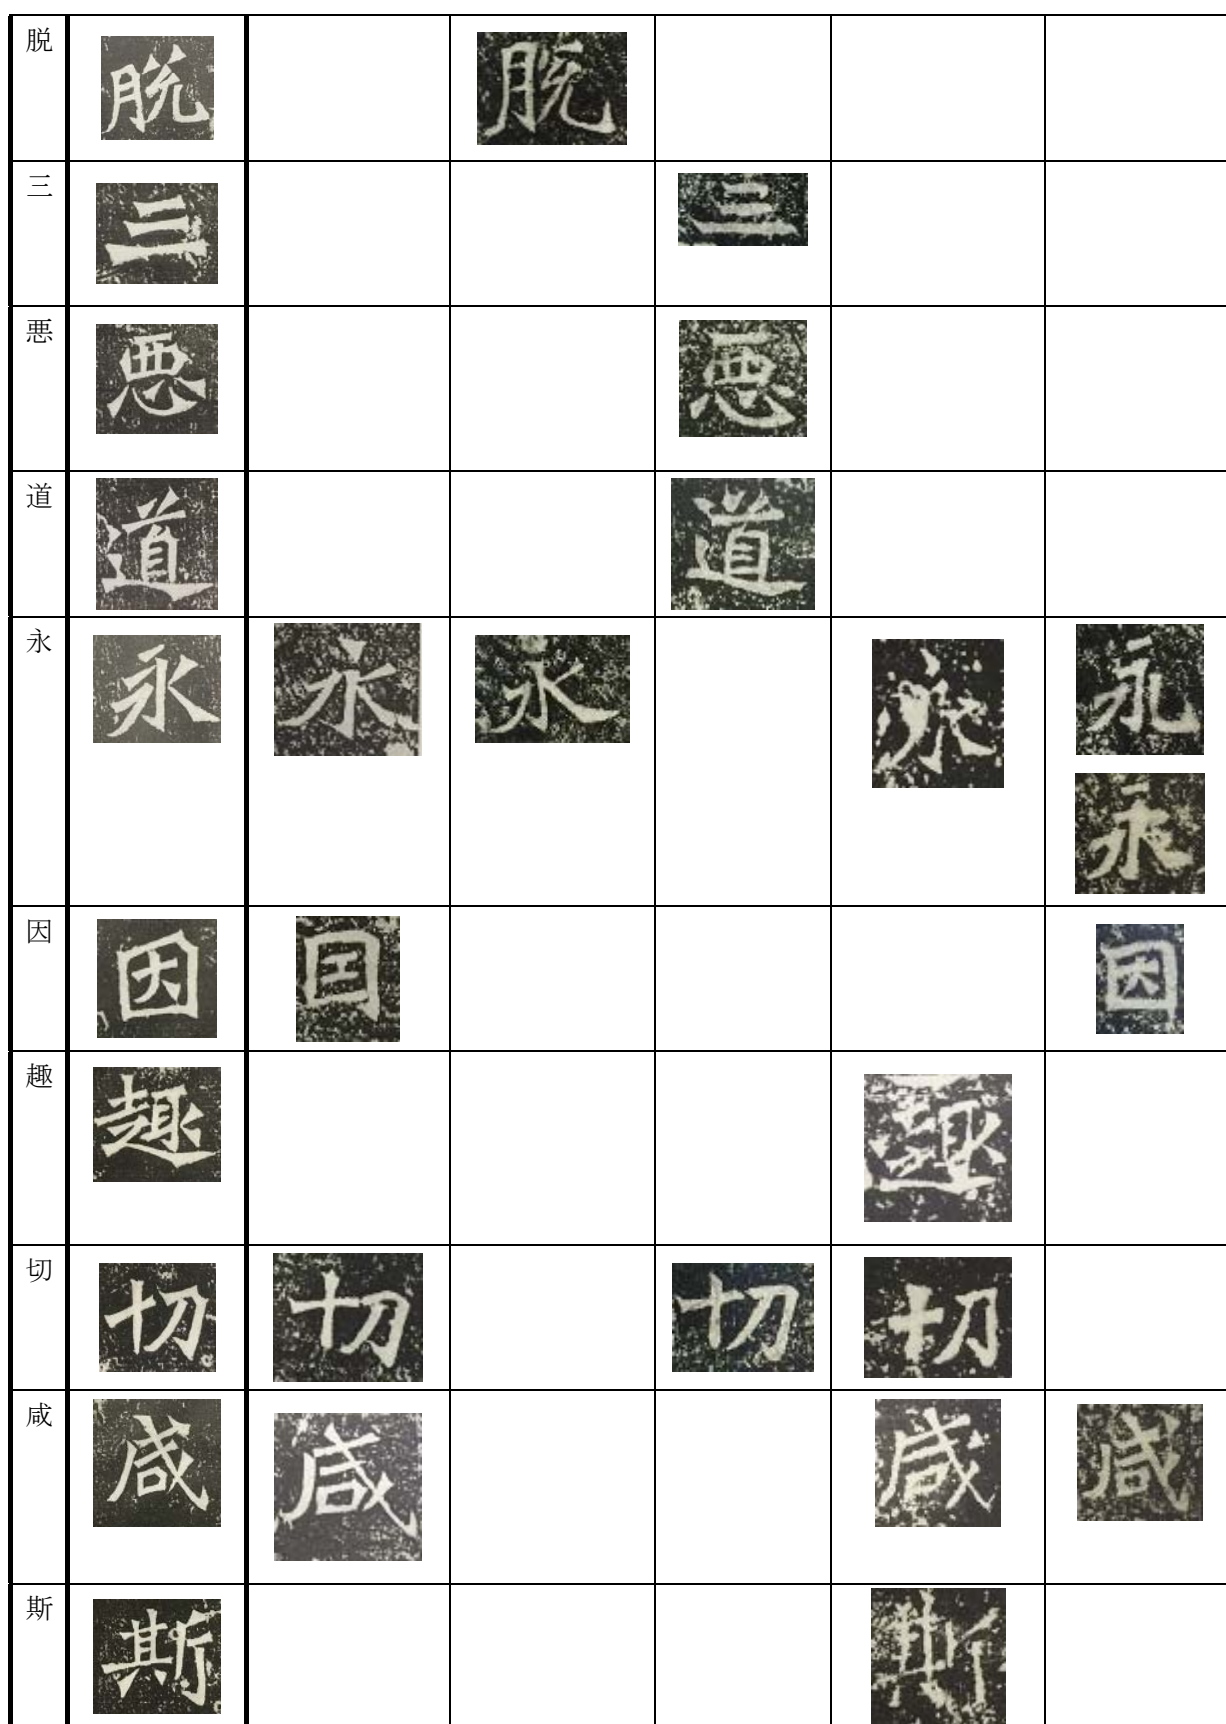 脱 脱 脱
三 三 三
悪 悪 悪
道 道 道
永 永 永 永 永 永
永
因 因 囯 因
趣 趣 趣
切 切 切 切 切
咸 咸 咸 咸 咸
斯 斯 斯